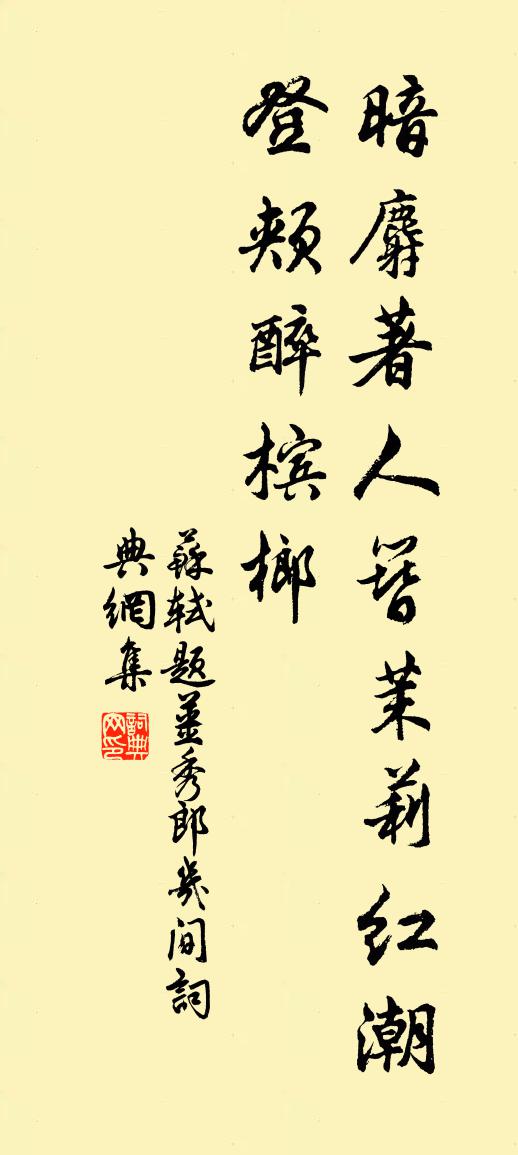 暗麝著人簪茉莉红潮
登颊醉槟榔
蘇軾题薑秀郎幾间詞
典網集
詞典网印